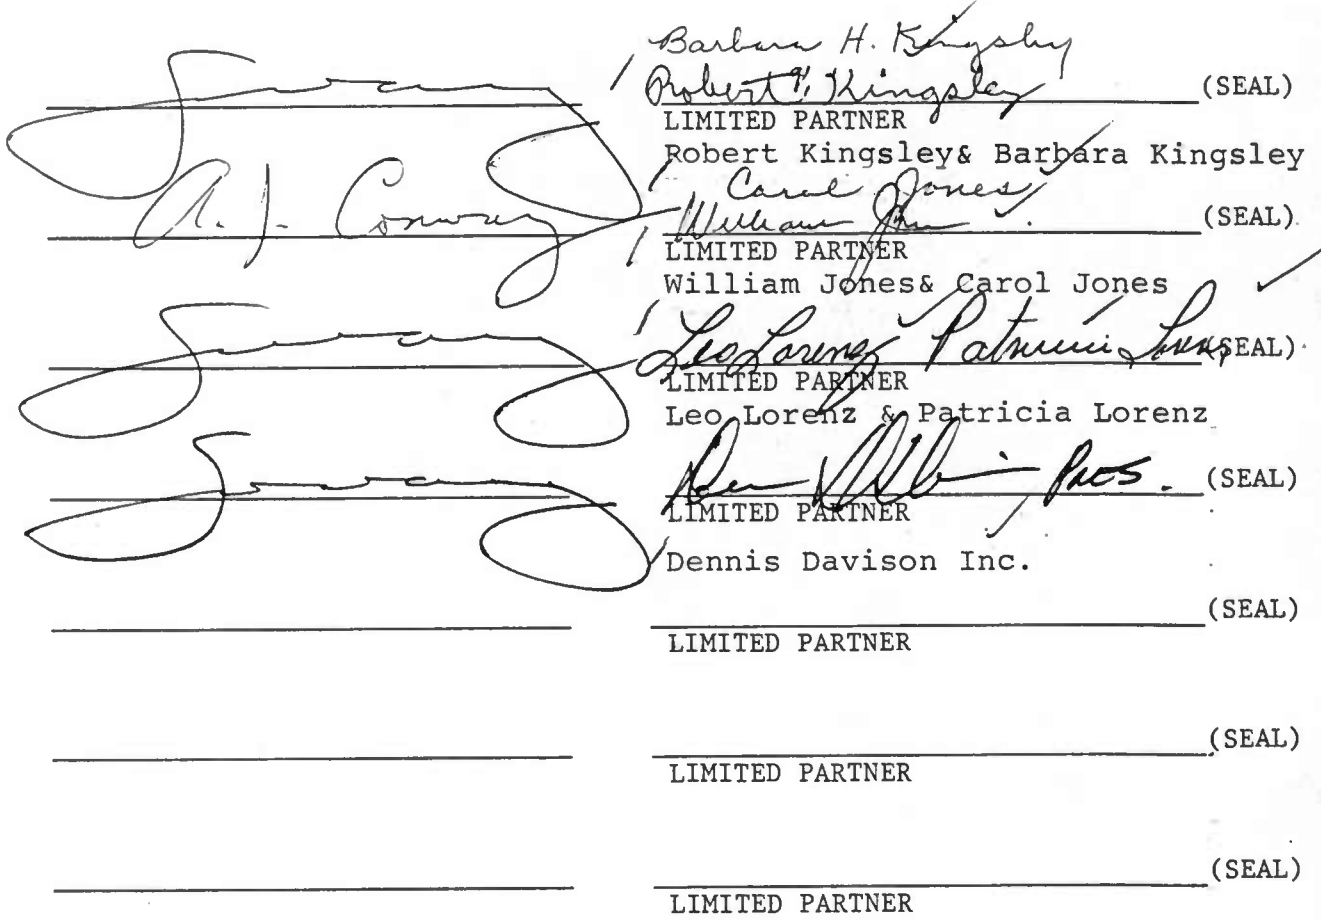 Barbara H. Kingsley
Robert Kingsley (SEAL)
LIMITED PARTNER
Robert Kingsley& Barbara Kingsley
Carol Jones
A. J. Conway William Jones (SEAL)
LIMITED PARTNER
William Jones& Carol Jones
Leo Lorenz Patricia Lorenz (SEAL)
LIMITED PARTNER
Leo Lorenz & Patricia Lorenz
Pres. (SEAL)
LIMITED PARTNER
Dennis Davison Inc.
(SEAL)
LIMITED PARTNER
(SEAL)
LIMITED PARTNER
(SEAL)
LIMITED PARTNER